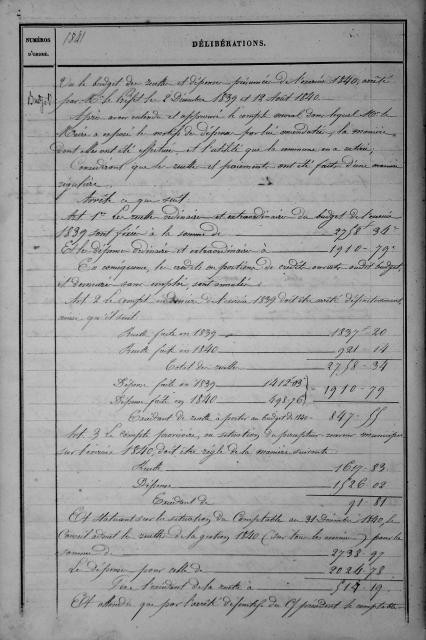 NUMÉROS
D'ORDRE.
1841
DÉLIBÉRATIONS.
Budget
Vu le budget des recettes et dépenses présumées de l'exercice 1840, arrêté
par Mr le Préfet le 2 Décembre 1839 et 18 Août 1840.
Après avoir entendu et approuvé le compte moral dans lequel Mr le
Maire a exposé les motifs des dépenses par lui mandatées, la manière
dont elles ont été effectuées et l'utilité que la commune en a retirée,
Considérant que les recettes et paiements ont été faits d'une manière
régulière.
Arrête ce qui suit.
Art. 1er Les recettes ordinaires et extraordinaires du budget de l'exercice
1839 sont fixées à la somme de 2758 " 34 c
Et les dépenses ordinaires et extraordinaires à 1910 - 79 c
En conséquence, les crédits ou portions de crédits ouverts audit budget,
et demeurés sans emploi, sont annulés.
Art. 2 Le compte de l'exercice 1839 doit être arrêté définitivement
ainsi qu'il suit.
Recette faite en 1839 1837 - 20
Recette faite en 1840 921 - 14
Total des recettes 2758 - 34
Dépense faite en 1839 1412 - 03
Dépense faite en 1840 498 - 76
1910 - 79
Excédant de recette à porter au budget de 1840 847 - 55
Art. 3 Le compte provisoire, ou situation du percepteur receveur municipal
sur l'exercice 1840, doit être réglé de la manière suivante
Recette 1617 - 83
Dépense 1526 - 02
Excédant de 91 - 81
Et statuant sur la situation du Comptable au 31 Décembre 1840, le
Conseil admet les recettes de la gestion 1840 (sur tous les exercices) pour la
somme de 2538 - 97
Les dépenses pour celle de 2024 - 78
Fixe l'excédant de la recette à 514 - 19
Et attendu que par l'arrêté définitif du précédent le comptable